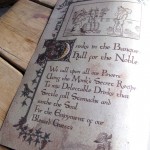 Drinks in the Banquet
Hall for the Noble
We call upon all our Powers
Along the Monk's Secret Recipe
To mix Delectable Drinks that
Soothe yall Stomachs and
soothe the Soul
For the Enjoyment of our
Blessed Guests